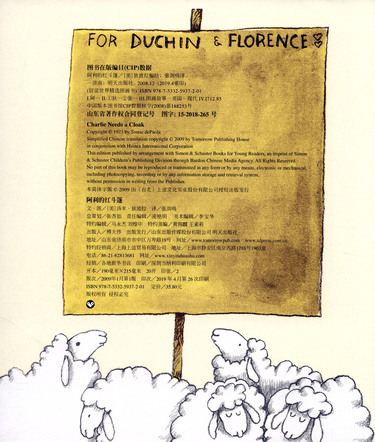 FOR DUCHIN & FLORENCE
图书在版编目(CIP)数据
阿利的红斗篷/(美)狄波拉编绘;张剑鸣译.
—济南:明天出版社,2008.12(2019.4重印)
(信谊世界精选图画书) ISBN 978-7-5332-5937-2-01
中国版本图书馆CIP数据核字(2008)第188253号
山东省著作权合同登记号 图字:15-2018-265号
Charlie Needs a Cloak
Copyright © 1973 by Tomie dePaola
Simplified Chinese translation copyright © 2009 by Tomorrow Publishing House
in conjunction with Hsinex International Corporation
This edition published by arrangement with Simon & Schuster Books for Young Readers, an imprint of Simon
& Schuster Children's Publishing Division through Bardon-Chinese Media Agency. All Rights Reserved.
No part of this book may be reproduced or transmitted in any form or by any means, electronic or mechanical,
including photocopying, recording or by any information storage and retrieval system,
without permission in writing from the Publisher.
本简体字版 © 2009 由(台北)上谊文化实业股份有限公司授权出版发行
阿利的红斗篷
文·图/汤米·狄波拉 译/张剑鸣
总策划/张杏如
特约编辑/马永杰 刘维中
出版人/傅大伟 出版发行/山东出版传媒股份有限公司 明天出版社
地址/山东省济南市市中区万寿路19号 网址/www.tomorrowpub.com
特约经销商/上海上谊贸易有限公司
电话/86-21-62813681 网址/www.xinyituhuashu.com
经销/各地新华书店 印刷/深圳当纳利印刷有限公司
开本/190毫米×215毫米 20开 印张/2
版次/2009年1月第1版 印次/2019年4月第26次印刷
ISBN 978-7-5332-5937-2-01 定价/35.80元
版权所有 侵权必究